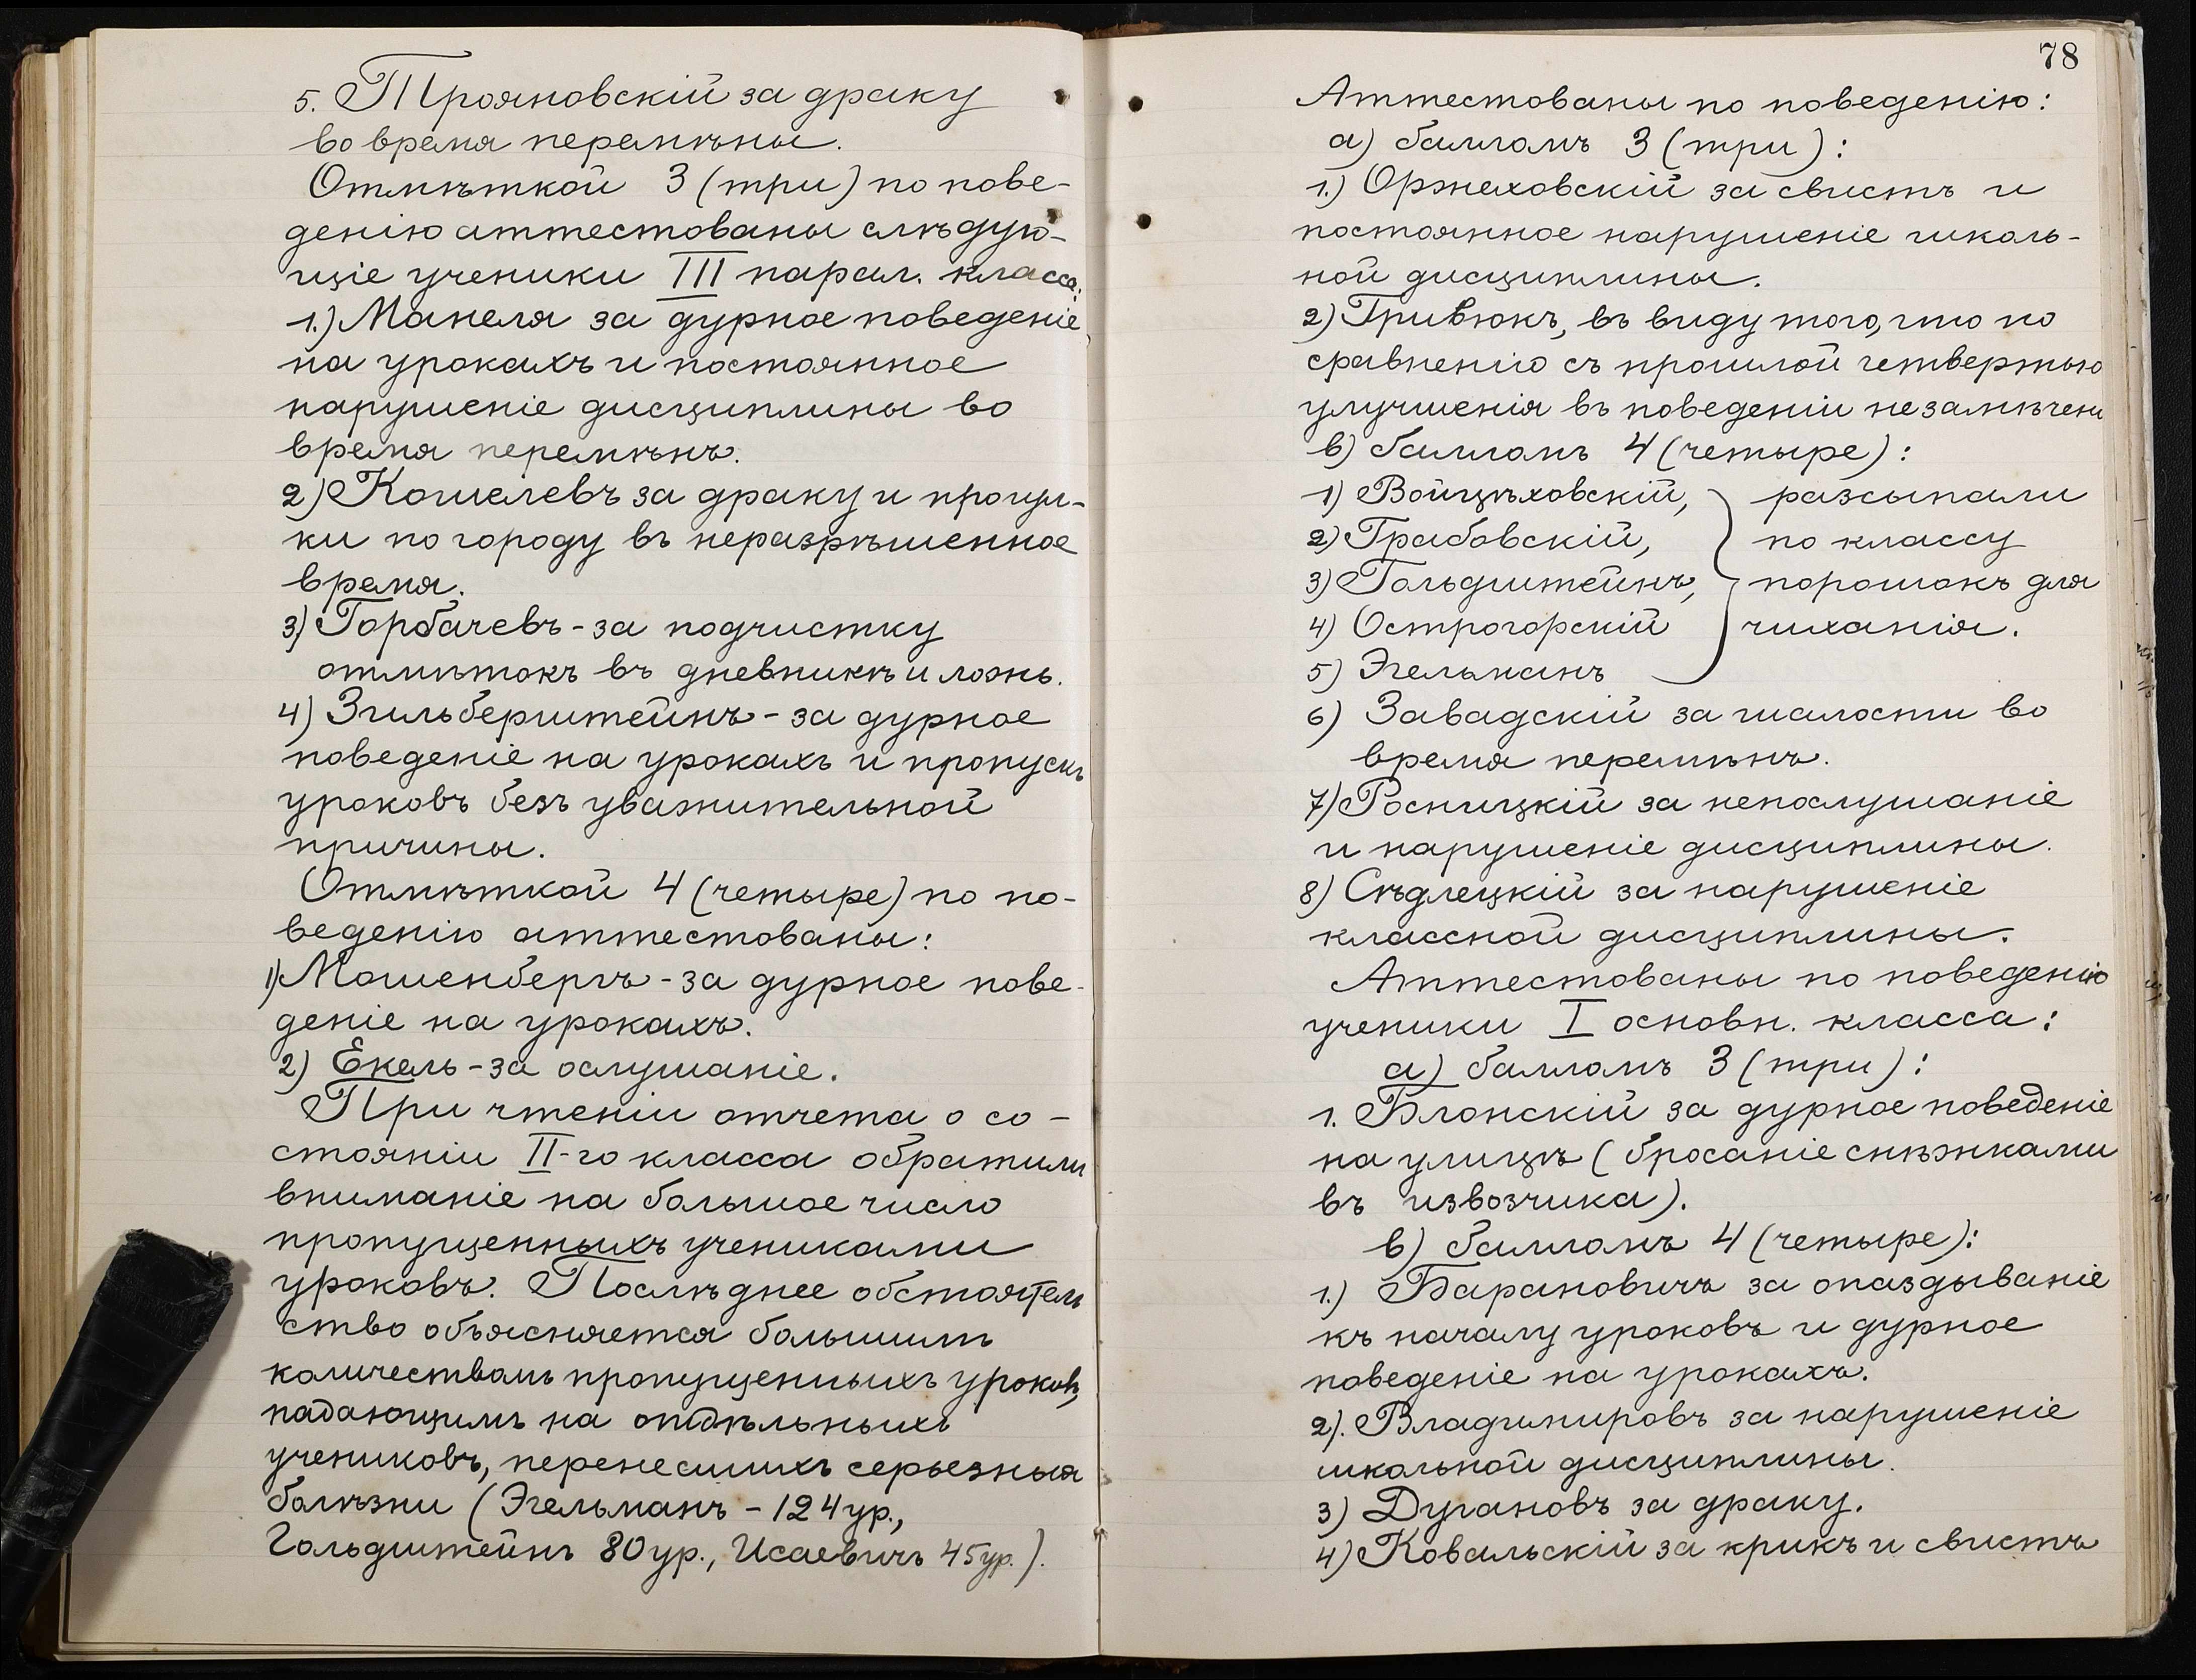 5. Трояновскій за драку
во время перемѣны.
Отмѣткой 3 (три) по пове-
денію аттестованы слѣдую-
щіе ученики III парал. класса:
1.) Манеля за дурное поведеніе
на урокахъ и постоянное
нарушеніе дисциплины во
время перемѣнъ.
2) Кошелевъ за драку и прогул-
ки по городу въ неразрѣшенное
время.
3) Горбачевъ - за подчистку
отмѣтокъ въ дневникѣ и ложь.
4) Зильберштейнъ - за дурное
поведеніе на урокахъ и пропускъ
уроковъ безъ уважительной
причины.
Отмѣткой 4 (четыре) по по-
веденію аттестованы:
1) Мошенбергъ - за дурное пове-
деніе на урокахъ.
2) Екель - за ослушаніе.
При чтеніи отчета о со-
стояніи II-го класса обратили
вниманіе на большое число
пропущенныхъ учениками
уроковъ. Послѣднее обстоятель
ство объясняется большимъ
количествомъ пропущенныхъ уроковъ,
падающимъ на отдѣльныхъ
учениковъ, перенесшихъ серьезныя
болѣзни (Эгельманъ - 124 ур.,
Гольдштейнъ 80 ур., Исаевичъ 45 ур.).
78
Аттестованы по поведенію:
а) балломъ 3 (три):
1.) Оржеховскій за свистъ и
постоянное нарушеніе школь-
ной дисциплины.
2) Гривюкъ, въ виду того, что по
сравненію съ прошлой четвертью
улучшенія въ поведеніи не замѣчено
в) балломъ 4 (четыре):
1) Войцѣховскій, разсыпали
2) Грабовскій, по классу
3) Гольдштейнъ, порошокъ для
4) Острогорскій чиханія.
5) Эгельманъ
6) Завадскій за шалости во
время перемѣнъ.
7) Росницкій за непослушаніе
и нарушеніе дисциплины.
8) Сѣдлецкій за нарушеніе
классной дисциплины.
Аттестованы по поведенію
ученики I основн. класса:
а) балломъ 3 (три):
1. Блонскій за дурное поведеніе
на улицѣ (бросаніе снѣжками
въ извозчика).
в) балломъ 4 (четыре):
1.) Барановичъ за опаздываніе
къ началу уроковъ и дурное
поведеніе на урокахъ.
2). Владимировъ за нарушеніе
школьной дисциплины.
3) Дугановъ за драку.
4) Ковальскій за крикъ и свистъ